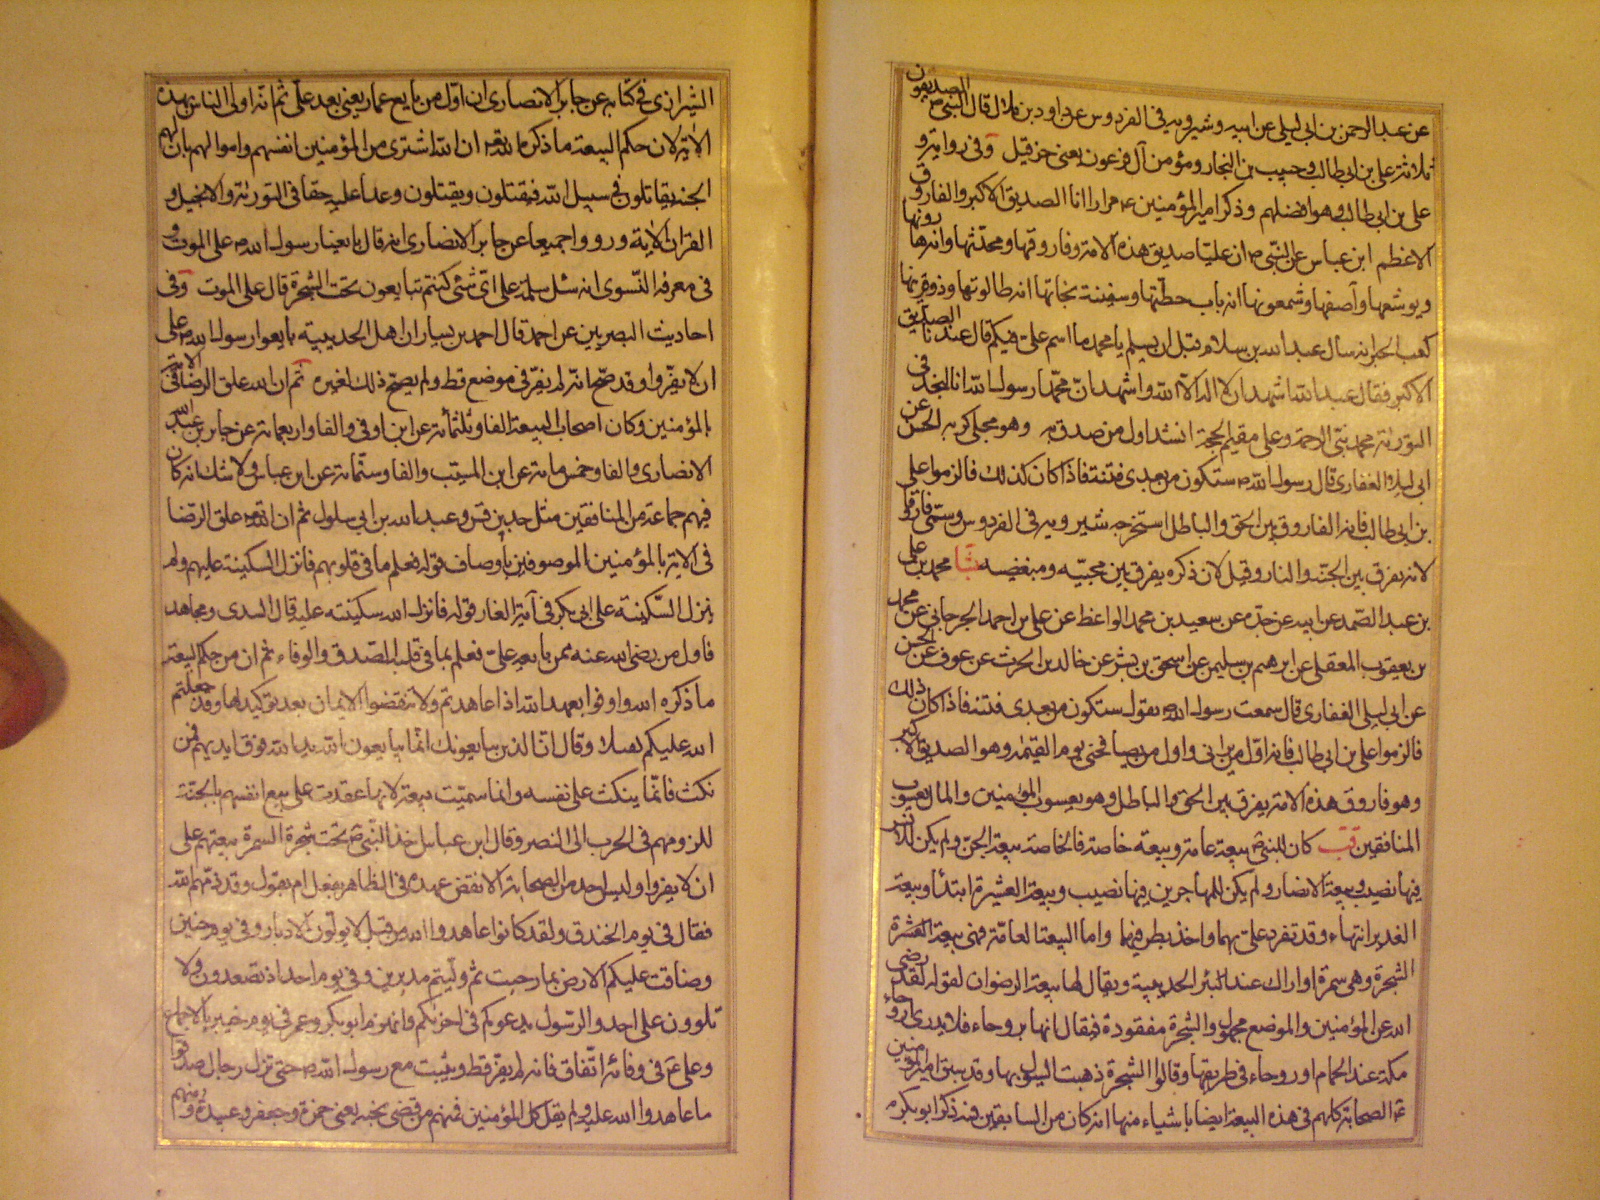 عن عبد الرحمن بن ابى ليلى عن ابيه وشيرويه فى الفردوس عن داود بن بلال قال النبى ص الصديقون
ثلاثة على بن ابى طالب وحبيب بن النجار ومؤمن آل فرعون يعنى حزقيل وفى رواية و
على بن ابى طالب وهو افضلهم وذكر امير المؤمنين ع مرارا انا الصديق الاكبر والفاروق
الاعظم ابن عباس عن النبى ص ان عليا صديق هذه الامة وفاروقها ومحدثها وانه هارونها
ويوشعها وآصفها وشمعونها انه باب حطتها وسفينة نجاتها انه طالوتها وذو قرنيها
كعب الحبر انه سال عبد الله بن سلام قبل ان يسلم يا محمد ما اسم على فيكم قال عندنا الصديق
الاكبر فقال عبد الله اشهد ان لا اله الا الله واشهد ان محمدا رسول الله انا لنجد فى
التورية محمد نبى الرحمة وعلى مقيم الحجة انشد اول من صدق به وهو مجلى كربه الحسن عن
ابى ليلى الغفارى قال رسول الله ص ستكون من بعدى فتنة فاذا كان كذلك فالزموا على
بن ابى طالب فانه الفاروق بين الحق والباطل استخرجه شيرويه فى الفردوس وسمى فاروقا
لانه يفرق بين الجنة والنار وقيل لان ذكره يفرق بين محبيه ومبغضيه محمد بن على
بن عبد الصمد عن ابيه عن جده عن سعيد بن محمد الواعظ عن على بن احمد الجرجانى عن محمد
بن يعقوب المعقلى عن ابرهيم بن سليمن عن اسحق بن بشر عن خالد بن الحرث عن عوف عن الحسن
عن ابى ليلى الغفارى قال سمعت رسول الله ص يقول ستكون من بعدى فتنة فاذا كان ذلك
فالزموا على بن ابى طالب فانه اول من يرانى واول من يصافحنى يوم القيمة وهو الصديق الاكبر
وهو فاروق هذه الامة يفرق بين الحق والباطل وهو يعسوب المؤمنين والمال يعسوب
المنافقين قب كان للنبى ص بيعة عامة وبيعة خاصة فالخاصة بيعة الجن ولم يكن للانس
فيها نصيب وبيعة الانصار ولم يكن للمهاجرين فيها نصيب وبيعة العشيرة ابتداء وبيعة
الغدير انتهاء وقد تفرد على بهما واخذ بطرفيهما واما البيعة العامة فهى بيعة الشجرة
الشجرة وهى سمرة او اراك عند بئر الحديبية ويقال لها بيعة الرضوان لقوله لقد رضى
الله عن المؤمنين والموضع مجهول والشجرة مفقودة فيقال انها بروحاء فلا يدرى اروحاء
مكة عند الحمام او روحاء فى طريقها وقالوا الشجرة ذهبت السيول بها وقد سبق امير المؤمنين
ع الصحابة كلهم فى هذه البيعة ايضا باشياء منها انه كان من السابقين فيه ذكر ابو بكر
الشيرازى فى كتابه عن جابر الانصارى ان اول من بايع عمار يعنى بعد على ثم انه اولى الناس بهذه
الآية لان حكم البيعة ما ذكره الله تع ان الله اشترى من المؤمنين انفسهم واموالهم بان لهم
الجنة يقاتلون فى سبيل الله فيقتلون ويقتلون وعدا عليه حقا فى التورية والانجيل و
القران الآية ورووا جميعا عن جابر الانصارى انه قال بايعنا رسول الله ص على الموت و
فى معرفة النسوى انه سئل سلمة على اى شئ كنتم تبايعون تحت الشجرة قال على الموت وفى
احاديث البصريين عن احمد قال احمد بن يسار ان اهل الحديبية بايعوا رسول الله ص على
ان لا يفروا وقد صح انه لم يفر فى موضع قط ولم يصح ذلك لغيره ثم ان الله علق الرضا فى الآية
بالمؤمنين وكان اصحاب البيعة الفا وثلثمائة عن ابن اوفى والفا واربعمائة عن جابر بن عبد الله
الانصارى والفا وخمس مائة عن ابن المسيب والفا وستمائة عن ابن عباس ولا شك انه كان
فيهم جماعة من المنافقين مثل جد بن قيس وعبد الله بن ابى سلول ثم ان الله تع علق الرضا
فى الآية بالمؤمنين الموصوفين باوصاف قوله فعلم ما فى قلوبهم فانزل السكينة عليهم ولم
ينزل السكينة على ابى بكر فى آية الغار قوله فانزل الله سكينته عليه قال السدى ومجاهد
فاول من رضى الله عنه ممن بايعه على فعلم بما فى قلبه الصدق والوفاء ثم ان من حكم البيعة
ما ذكره الله واوفوا بعهد الله اذا عاهدتم ولا تنقضوا الايمان بعد توكيدها وقد جعلتم
الله عليكم كفيلا وقال ان الذين يبايعونك انما يبايعون الله يد الله فوق ايديهم فمن
نكث فانما ينكث على نفسه وانما سميت بيعة لانها عقدت على بيع انفسهم بالجنة
للزومهم فى الحرب الى النصر وقال ابن عباس اخذ النبى ص تحت شجرة السمرة بيعتهم على
ان لا يفروا وليس احد من الصحابة الا نقض عهده فى الظاهر بفعل ام بقول وقد ذمهم الله
فقال فى يوم الخندق ولقد كانوا عاهدوا الله من قبل لا يولون الادبار وفى يوم حنين
وضاقت عليكم الارض بما رحبت ثم وليتم مدبرين وفى يوم احد اذ تصعدون ولا
تلوون على احد والرسول يدعوكم فى اخريكم وانهزم ابو بكر وعمر فى يوم خيبر بالاجماع
وعلى ع فى وفائه اتفاق فانه لم يفر قط وثبت مع رسول الله ص حتى نزل رجال صدقوا
ما عاهدوا الله عليه ولم يقل كل المؤمنين فمنهم من قضى نحبه يعنى حمزة وجعفر وعبيدة ومنهم